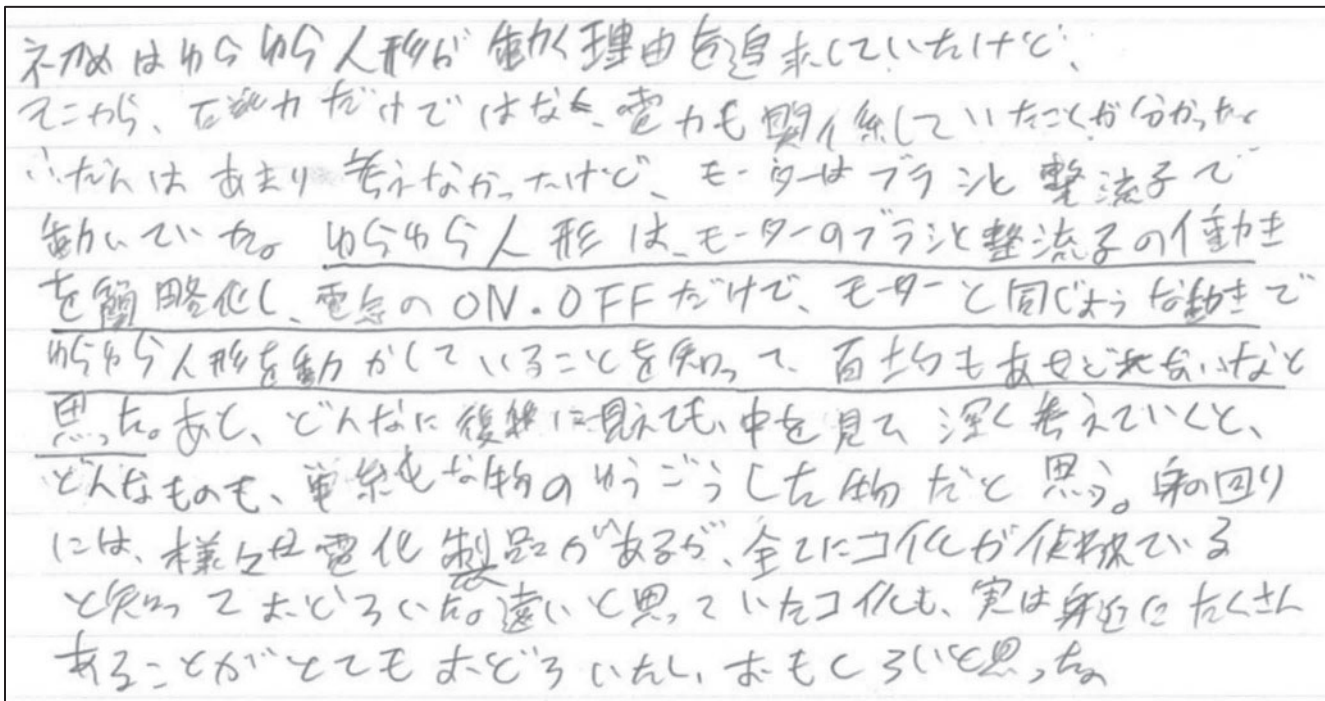 初めはゆらゆら人形が動く理由を追求していたけど、
そこから、磁力だけではなく、電力も関係していたことが分かった。
ふだんはあまり考えなかったけど、モーターはブラシと整流子で
動いていた。ゆらゆら人形は、モーターのブラシと整流子の働き
を簡略化し、電気のON・OFFだけで、モーターと同じような動きで
ゆらゆら人形を動かしていることを知って、百均もあなどれないなと
思った。あと、どんなに複雑に見えても、中を見て深く考えていくと、
どんなものも、単純な物のゆうごうした物だと思う。身の回り
には、様々な電化製品があるが、全てにコイルが使われている
と知っておどろいた。遠いと思っていたコイルも、実は身近にたくさん
あることがとてもおどろいたし、おもしろいと思った。